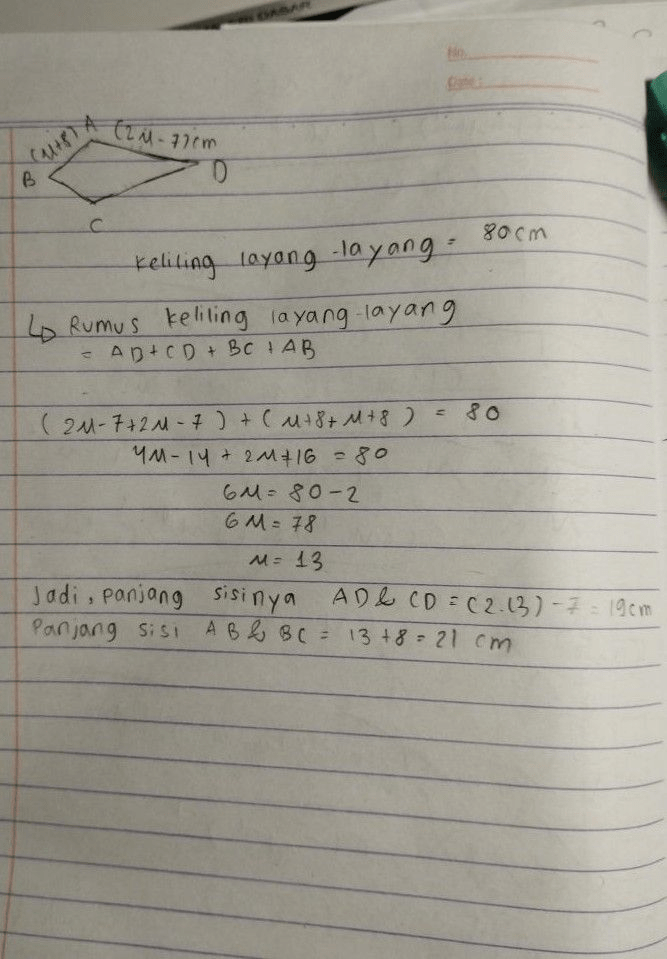 DASAR
No.
Date :
A
(x+8)
(2x-7)cm
B
D
C
Keliling layang-layang = 80cm
↳ Rumus keliling layang-layang
= AD+CD+BC+AB
(2x-7+2x-7)+(x+8+x+8) = 80
4x-14+2x+16 = 80
6x=80-2
6x=78
x=13
Jadi, panjang sisinya AD & CD=(2.13)-7=19cm
Panjang sisi AB & BC = 13+8=21 cm